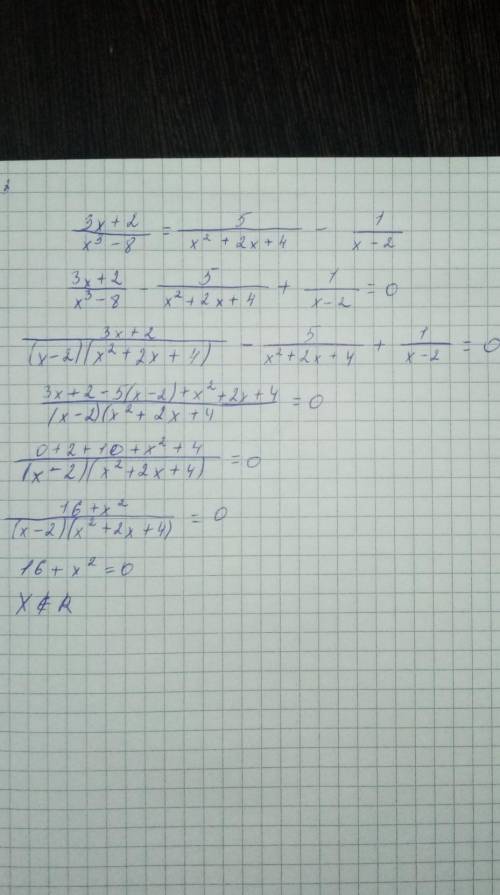 (3x+2)/(x³-8) = 5/(x²+2x+4) - 1/(x-2)
(3x+2)/(x³-8) - 5/(x²+2x+4) + 1/(x-2) = 0
(3x+2)/((x-2)(x²+2x+4)) - 5/(x²+2x+4) + 1/(x-2) = 0
(3x+2-5(x-2)+x²+2x+4)/((x-2)(x²+2x+4) = 0
(0+2+10+x²+4)/((x-2)(x²+2x+4)) = 0
(16+x²)/((x-2)(x²+2x+4)) = 0
16+x²=0
X∉R